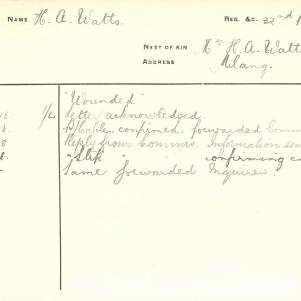 NAME H. A. Watts. REG. &C. 32nd
NEXT OF KIN Mrs H. A. Watt
ADDRESS Milang.
"Wounded"
1/4 Letter acknowledged.
Cable confirmed forwaided Comm
8 Reply from Commrs. Information sen
8. "Slip" confirming ca
Same forwaided Inquirer.